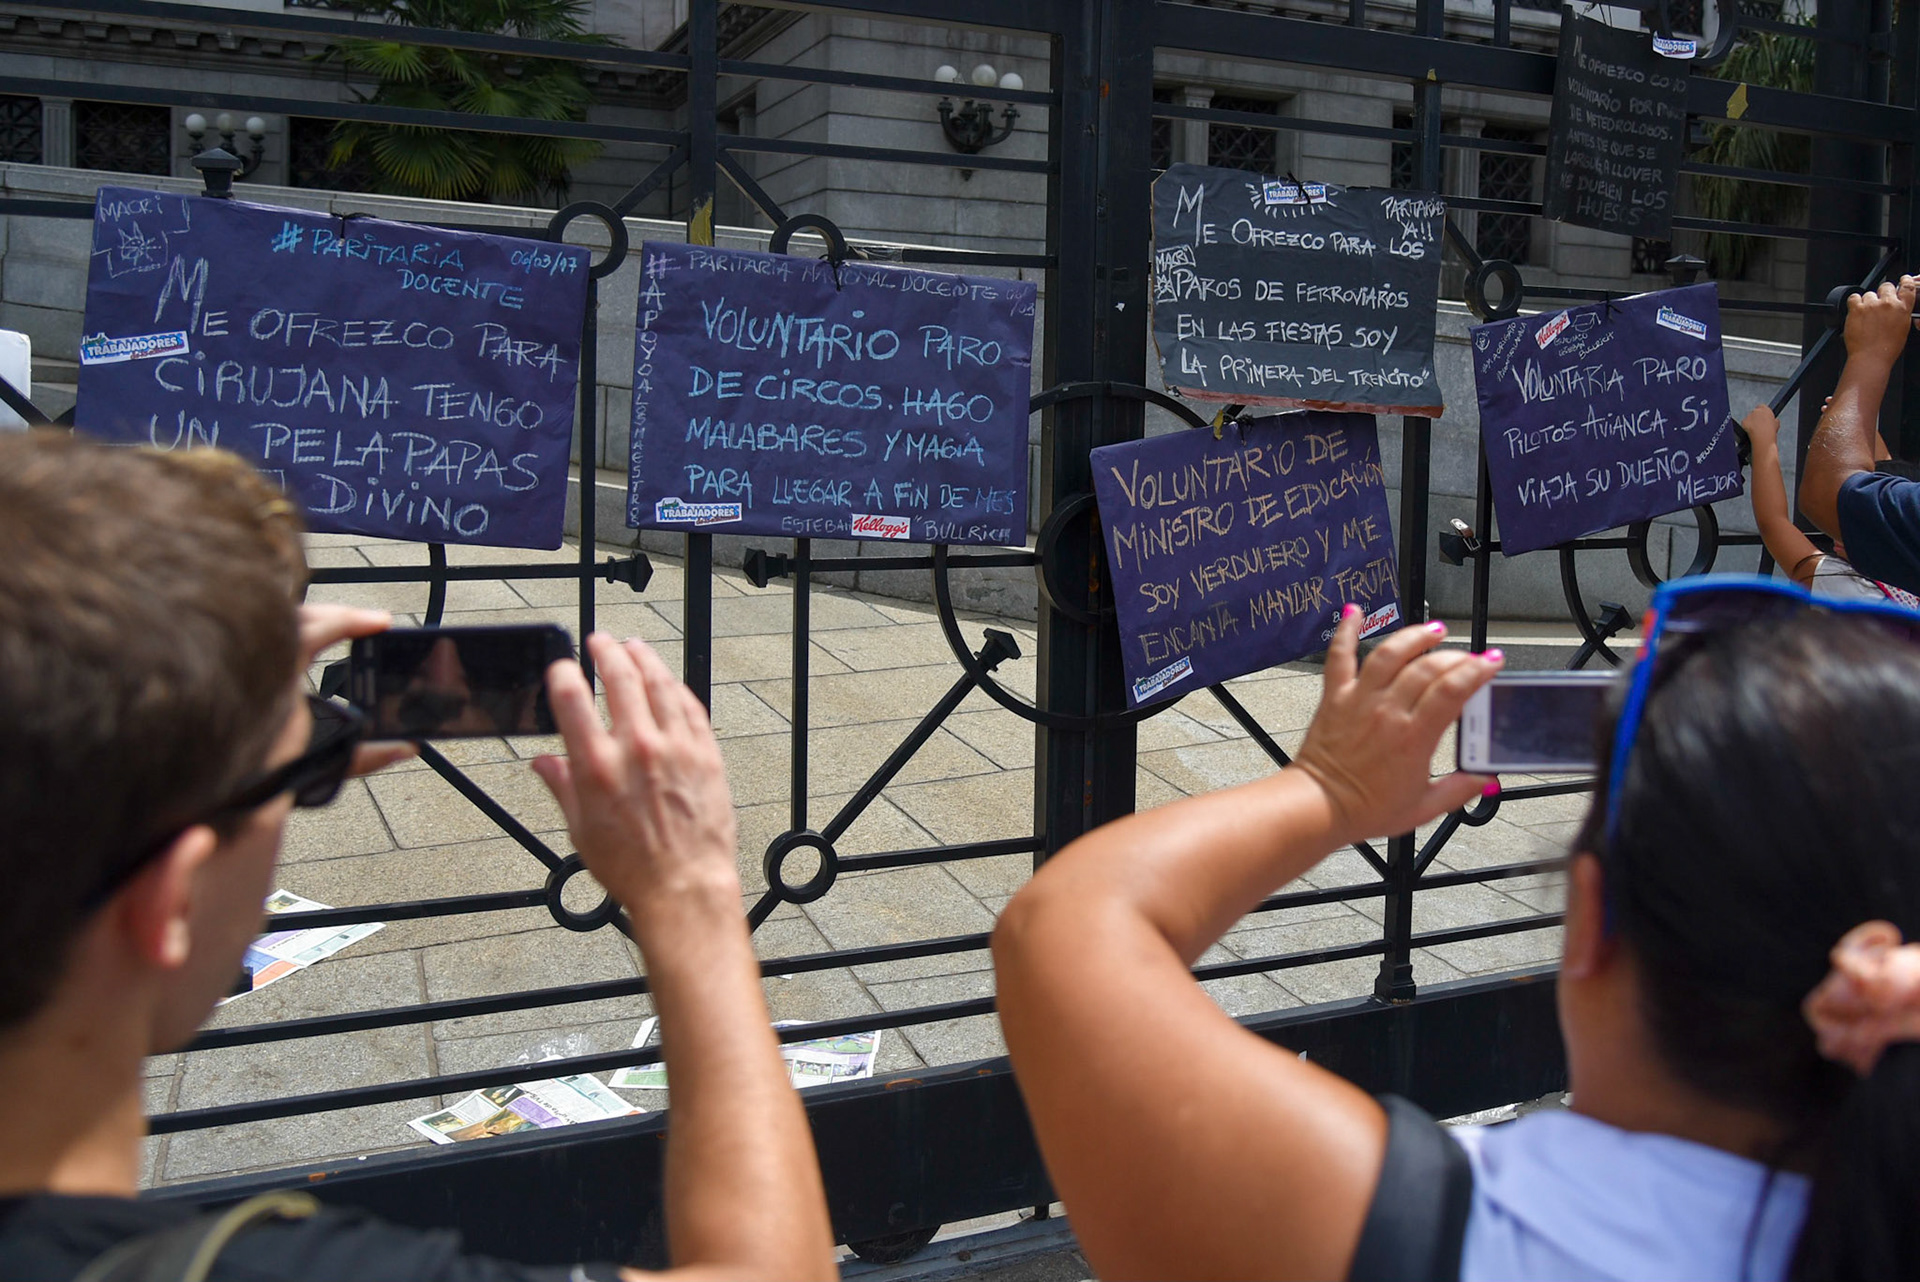 MACRI
# PARITARIA
06/03/17
DOCENTE
ME OFREZCO PARA
TRABAJADORES
CIRUJANA TENGO
UN PELAPAPAS
DIVINO
# PARITARIA NACIONAL DOCENTE 06/03
#APOYOALOSMAESTROS
VOLUNTARIO PARO
DE CIRCOS. HAGO
MALABARES Y MAGIA
PARA LLEGAR A FIN DE MES
TRABAJADORES
ESTEBAN Kellogg's "BULLRICH
TRABAJADORES
PARITARIAS
YA!!
ME OFREZCO PARA LOS
MACRI
PAROS DE FERROVIARIOS
EN LAS FIESTAS SOY
LA PRIMERA DEL TRENCITO"
VOLUNTARIO DE
MINISTRO DE EDUCACIÓN
SOY VERDULERO Y ME
ENCANTA MANDAR FRUTA
Kellogg's
TRABAJADORES
Kellogg's
ESTEBAN
BULLRICH
TRABAJADORES
VOLUNTARIA PARO
PILOTOS AVIANCA. SI
VIAJA SU DUEÑO
MEJOR
TRABAJADORES
ME OFREZCO COMO
VOLUNTARIO POR PARO
DE METEOROLOGOS.
ANTES DE QUE SE
LARGUE A LLOVER
ME DUELEN LOS
HUESOS